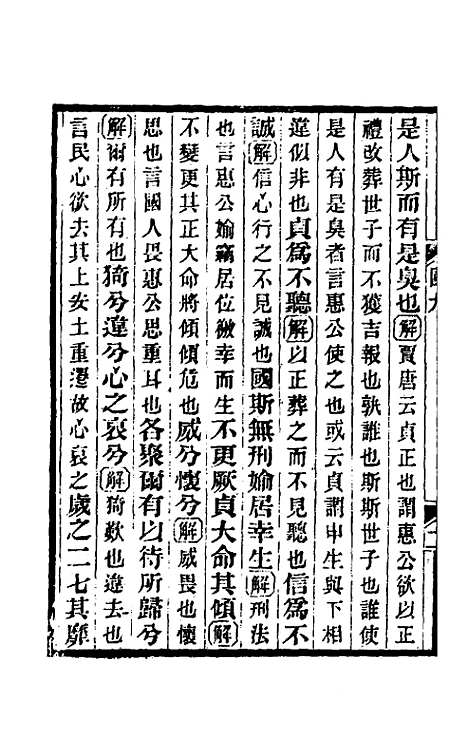 是人斯而有是臭也解賈唐云貞正也謂惠公欲以正
禮改葬世子而不獲吉報也孰誰也斯斯世子也誰使
是人有是臭者言惠公使之也或云貞謂申生與下相
違似非也貞為不聽解以正葬之而不見聽也信為不
誠解信心行之不見誠也國斯無刑媮居幸生解刑法
也言惠公媮竊居位徼幸而生不更厥貞大命其傾解
不變更其正大命將傾傾危也威兮懷兮解威畏也懷
思也言國人畏惠公思重耳也各聚爾有以待所歸兮
解爾有所有也猗兮違兮心之哀兮解猗歎也違去也
言民心欲去其上安土重遷故心哀之歲之二七其靡
國九